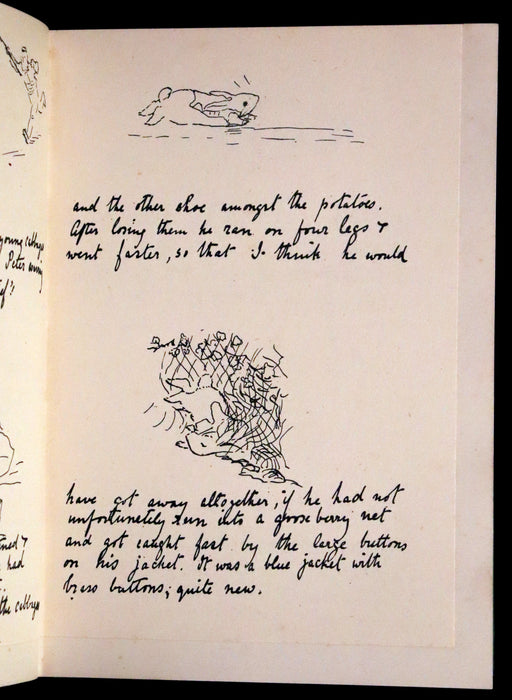 young cabbage
Peter
ned &
had
the cabbage
and the other shoe amongst the potatoes.
After losing them he ran on four legs &
went faster, so that I think he would
have got away altogether, if he had not
unfortunately run into a gooseberry net
and got caught fast by the large buttons
on his jacket. It was a blue jacket with
brass buttons; quite new.